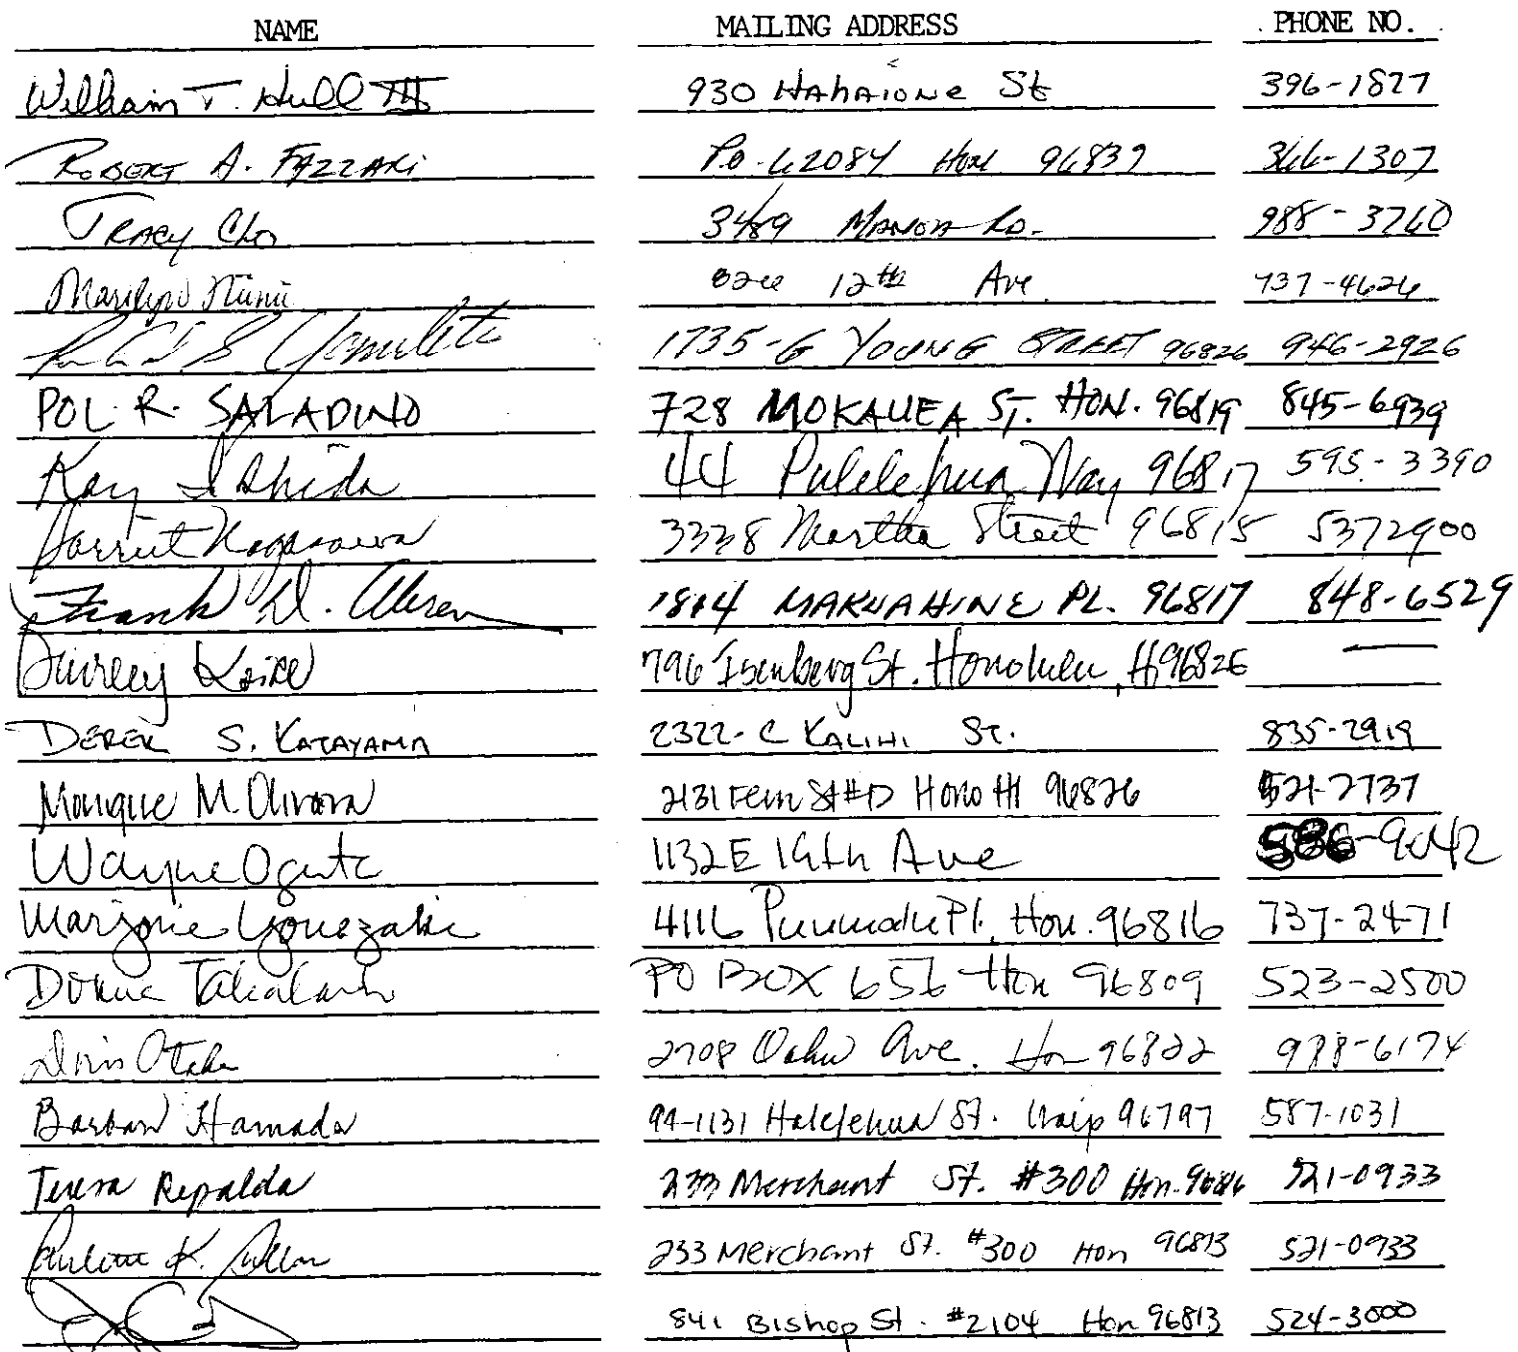 NAME MAILING ADDRESS PHONE NO.
William T. Hull III 930 Hahaione St 396-1827
Robert A. Fazzari P.O. 62084 Hon 96839 366-1307
Tracy Cho 3489 Manoa Rd. 988-3260
Marilyn 12th Ave 737-4626
1735-G YOUNG STREET 96826 946-2926
POL R. SALADINO 728 MOKAUEA ST. HON. 96819 845-6939
Kay Ishida 44 Pulelehua Way 96817 595-3390
Harriet Nagasawa 3338 Martha Street 96815 5372900
Frank D. 1814 MAKUAHINE PL. 96817 848-6529
Shirley 796 Isenberg St. Honolulu, H 96826 —
DEREK S. KATAYAMA 2322-C KALIHI ST. 835-2919
Monique M. Olivera 2131 Fern St #D Hono HI 96826 521-2737
Wayne Ogata 1132E 19th Ave 586-9042
Marjorie Yonezaki 4116 Puumalu Pl. Hon. 96816 737-2471
Donna PO BOX 656 Hon 96809 523-2500
Doris Otake 2708 Oahu Ave. Hon 96822 988-6174
Barbara Hamada 94-1131 Halelehua St. Waip 96797 587-1031
Teresa Repalda 233 Merchant St. #300 Hon. 521-0933
K. 233 Merchant St. #300 Hon 96813 521-0933
841 Bishop St. #2104 Hon 96813 524-3000